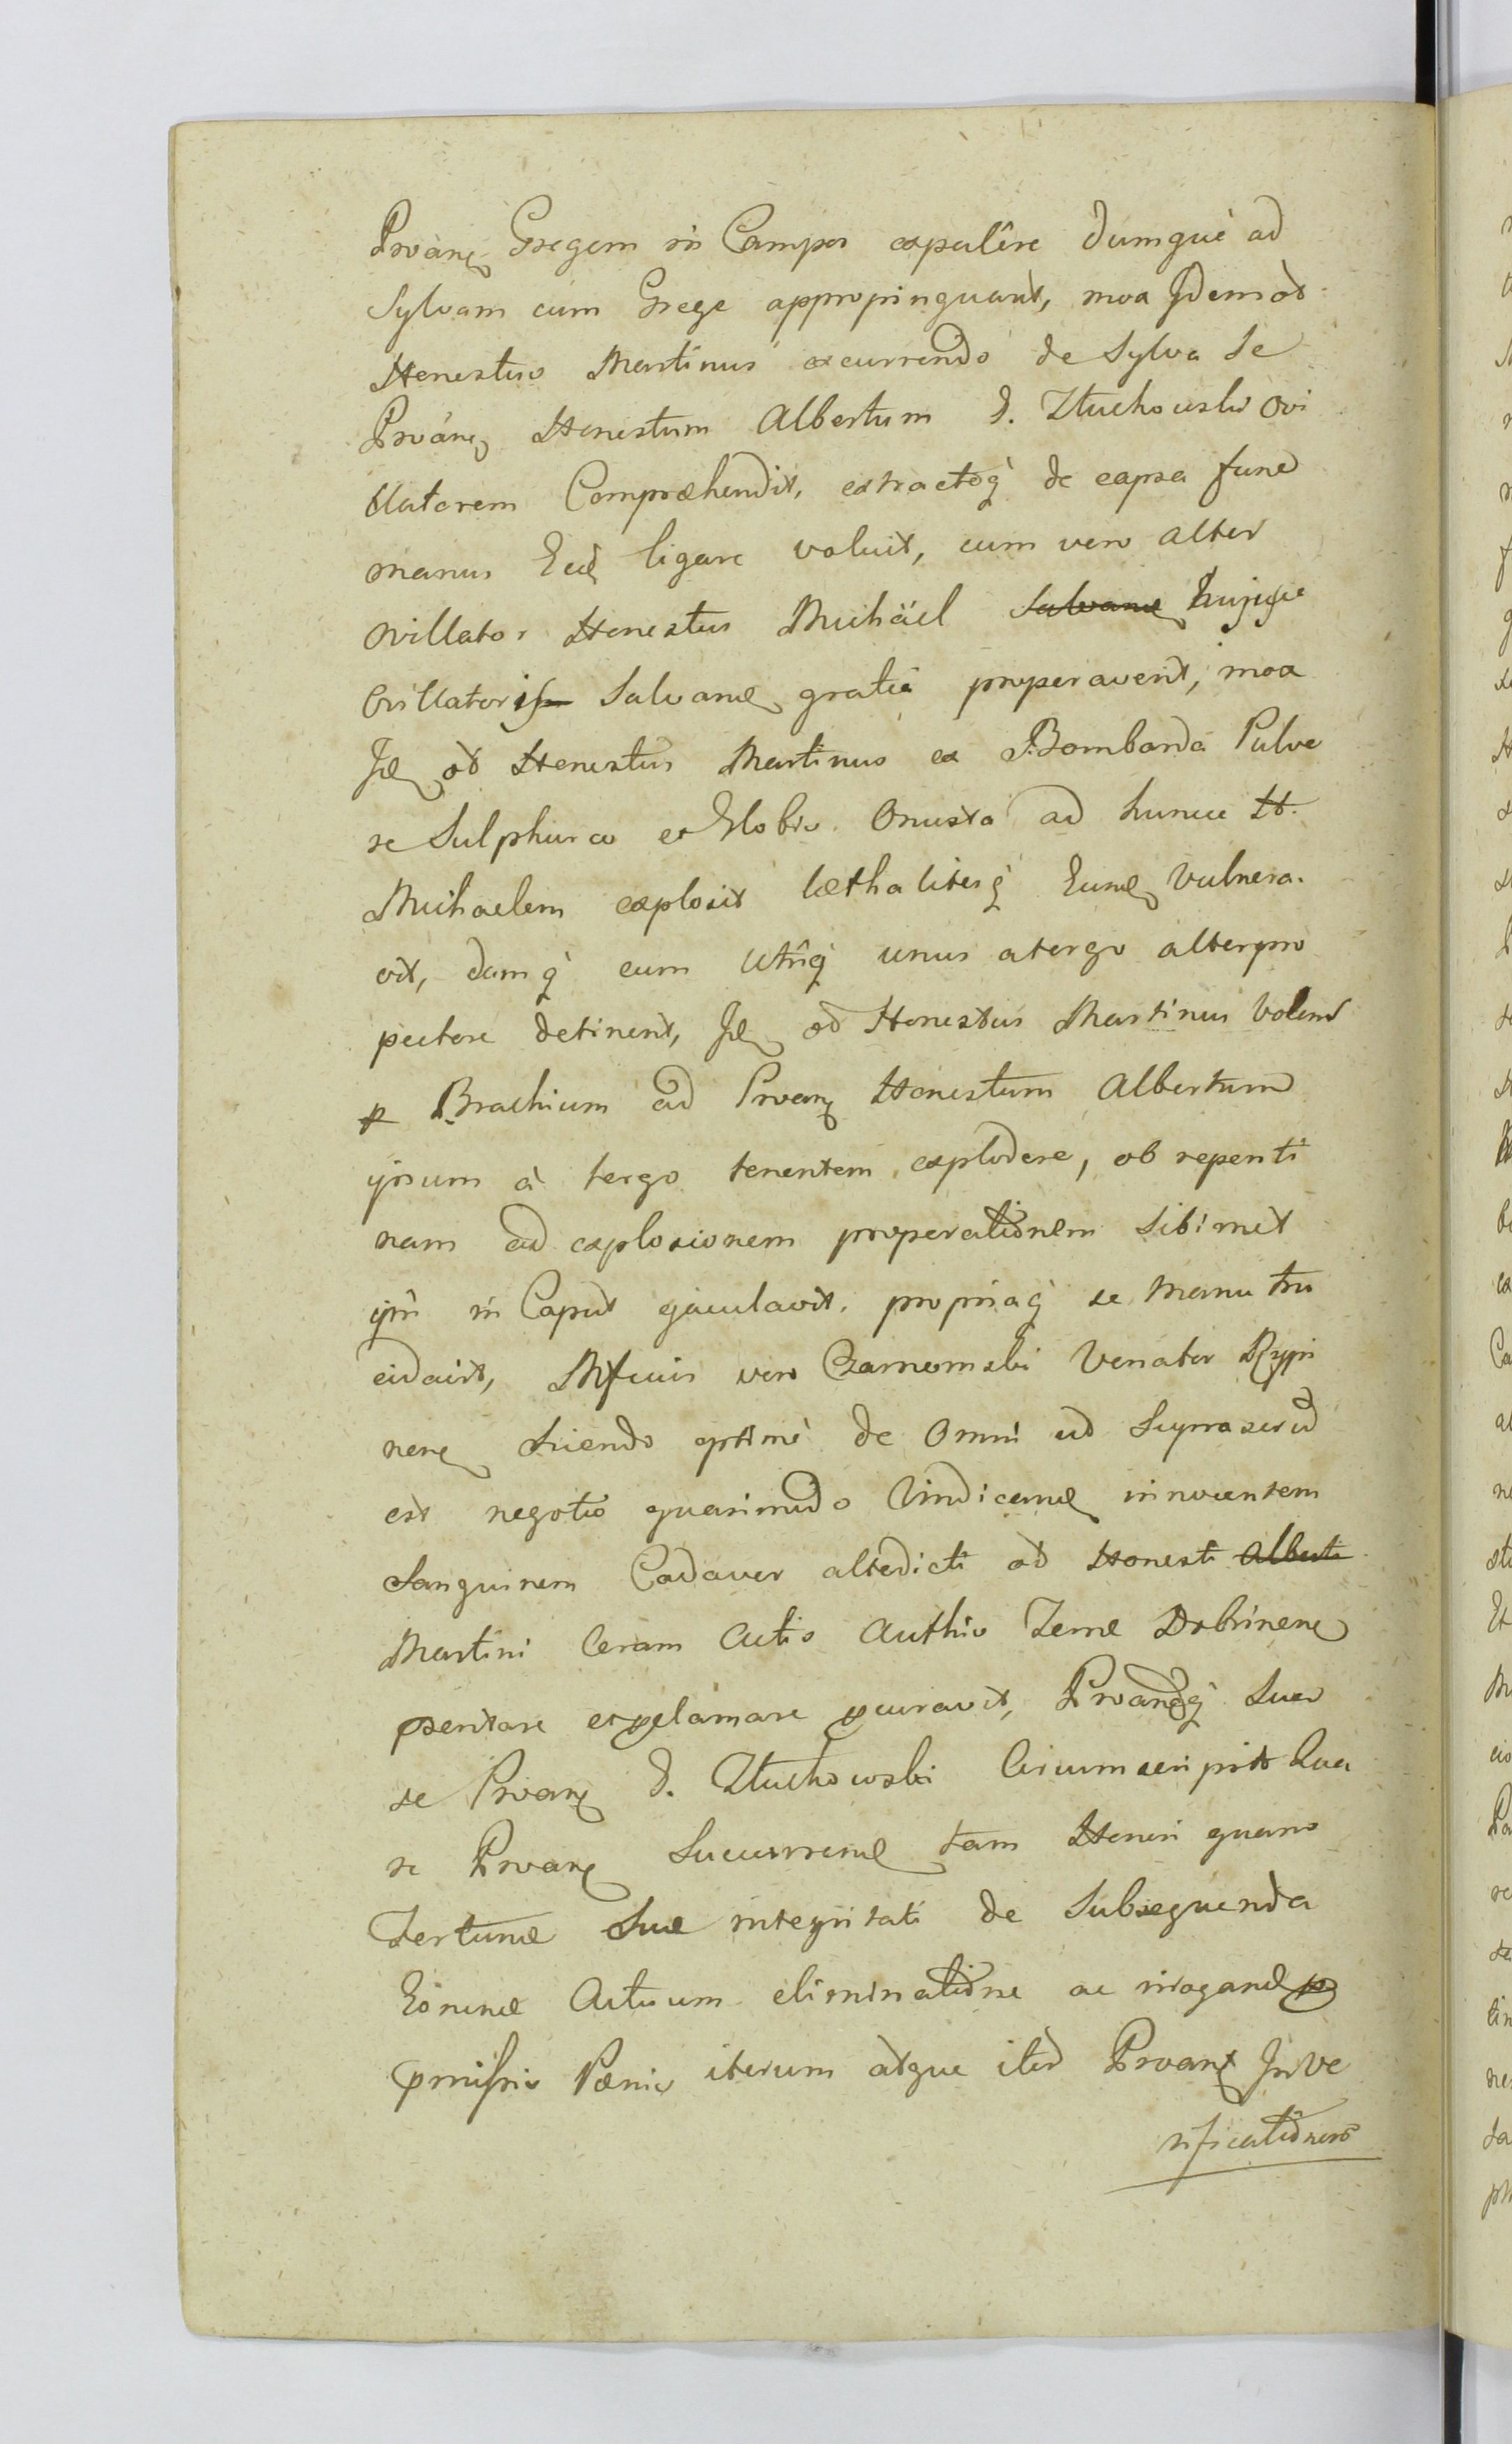 Prvänę Gregem in Campos expulêre dumquè ad
Sylvam cum Grege appropinquant, mox Jdem ot
Honestus Martinus excurrendo de Sylva Se
Prväng Honestum Albertum d. Złuchowski Ovi
llatorem Compræhendit, extractoq̀ de capsa fune
manus Eid ligare voluit, cum vero alter
ovillator Honestus Michäel Salvand hujque
Ovillatoris Salvand gratiâ properavent, mox
Jd ot Honestus Martinus ex Bombarda Pulve
re Sulphureo et Globis Onusta ad hunce H.
Michaelem explosit læthaliterq̀ Eund vulnera.
vit, dumq̀ eum Utrîq̀ unus atergo alter pro
pectore detinent, Jd ot Honestus Martinus Volens
p Brachium ad Prvang Honestum Albertum
ipsum à tergo tenentem explodere, ob repenti
nam ad explosionem properationem Sibimet
ipsi in Caput ejaculavit. propriaq̀ se Manu tru
cidavit, Mfcuis vero Czarnomski Venator Rypi
neng Sciendo optimè de Omni ut Suprascrip
est negotio quasimodo Vindicand innocentem
Sanguinem Cadaver altedicti ot Honesti Alberti
Martini Coram Actis Authis Terræ Dobrineng
psentare et pclamare pcuravit, Prvangq̀ Suer
se Prvang d. Złuchowski Circumscripsit Qua
re Prvang Sucurrend tam Honori quam
Fortunæ Suæ integritati de Subsequenda
Eorund Actuum eliminatione ac irrogand
pmissis Pœnis iterum atque iterd Prvang Jn Ve
rificationem